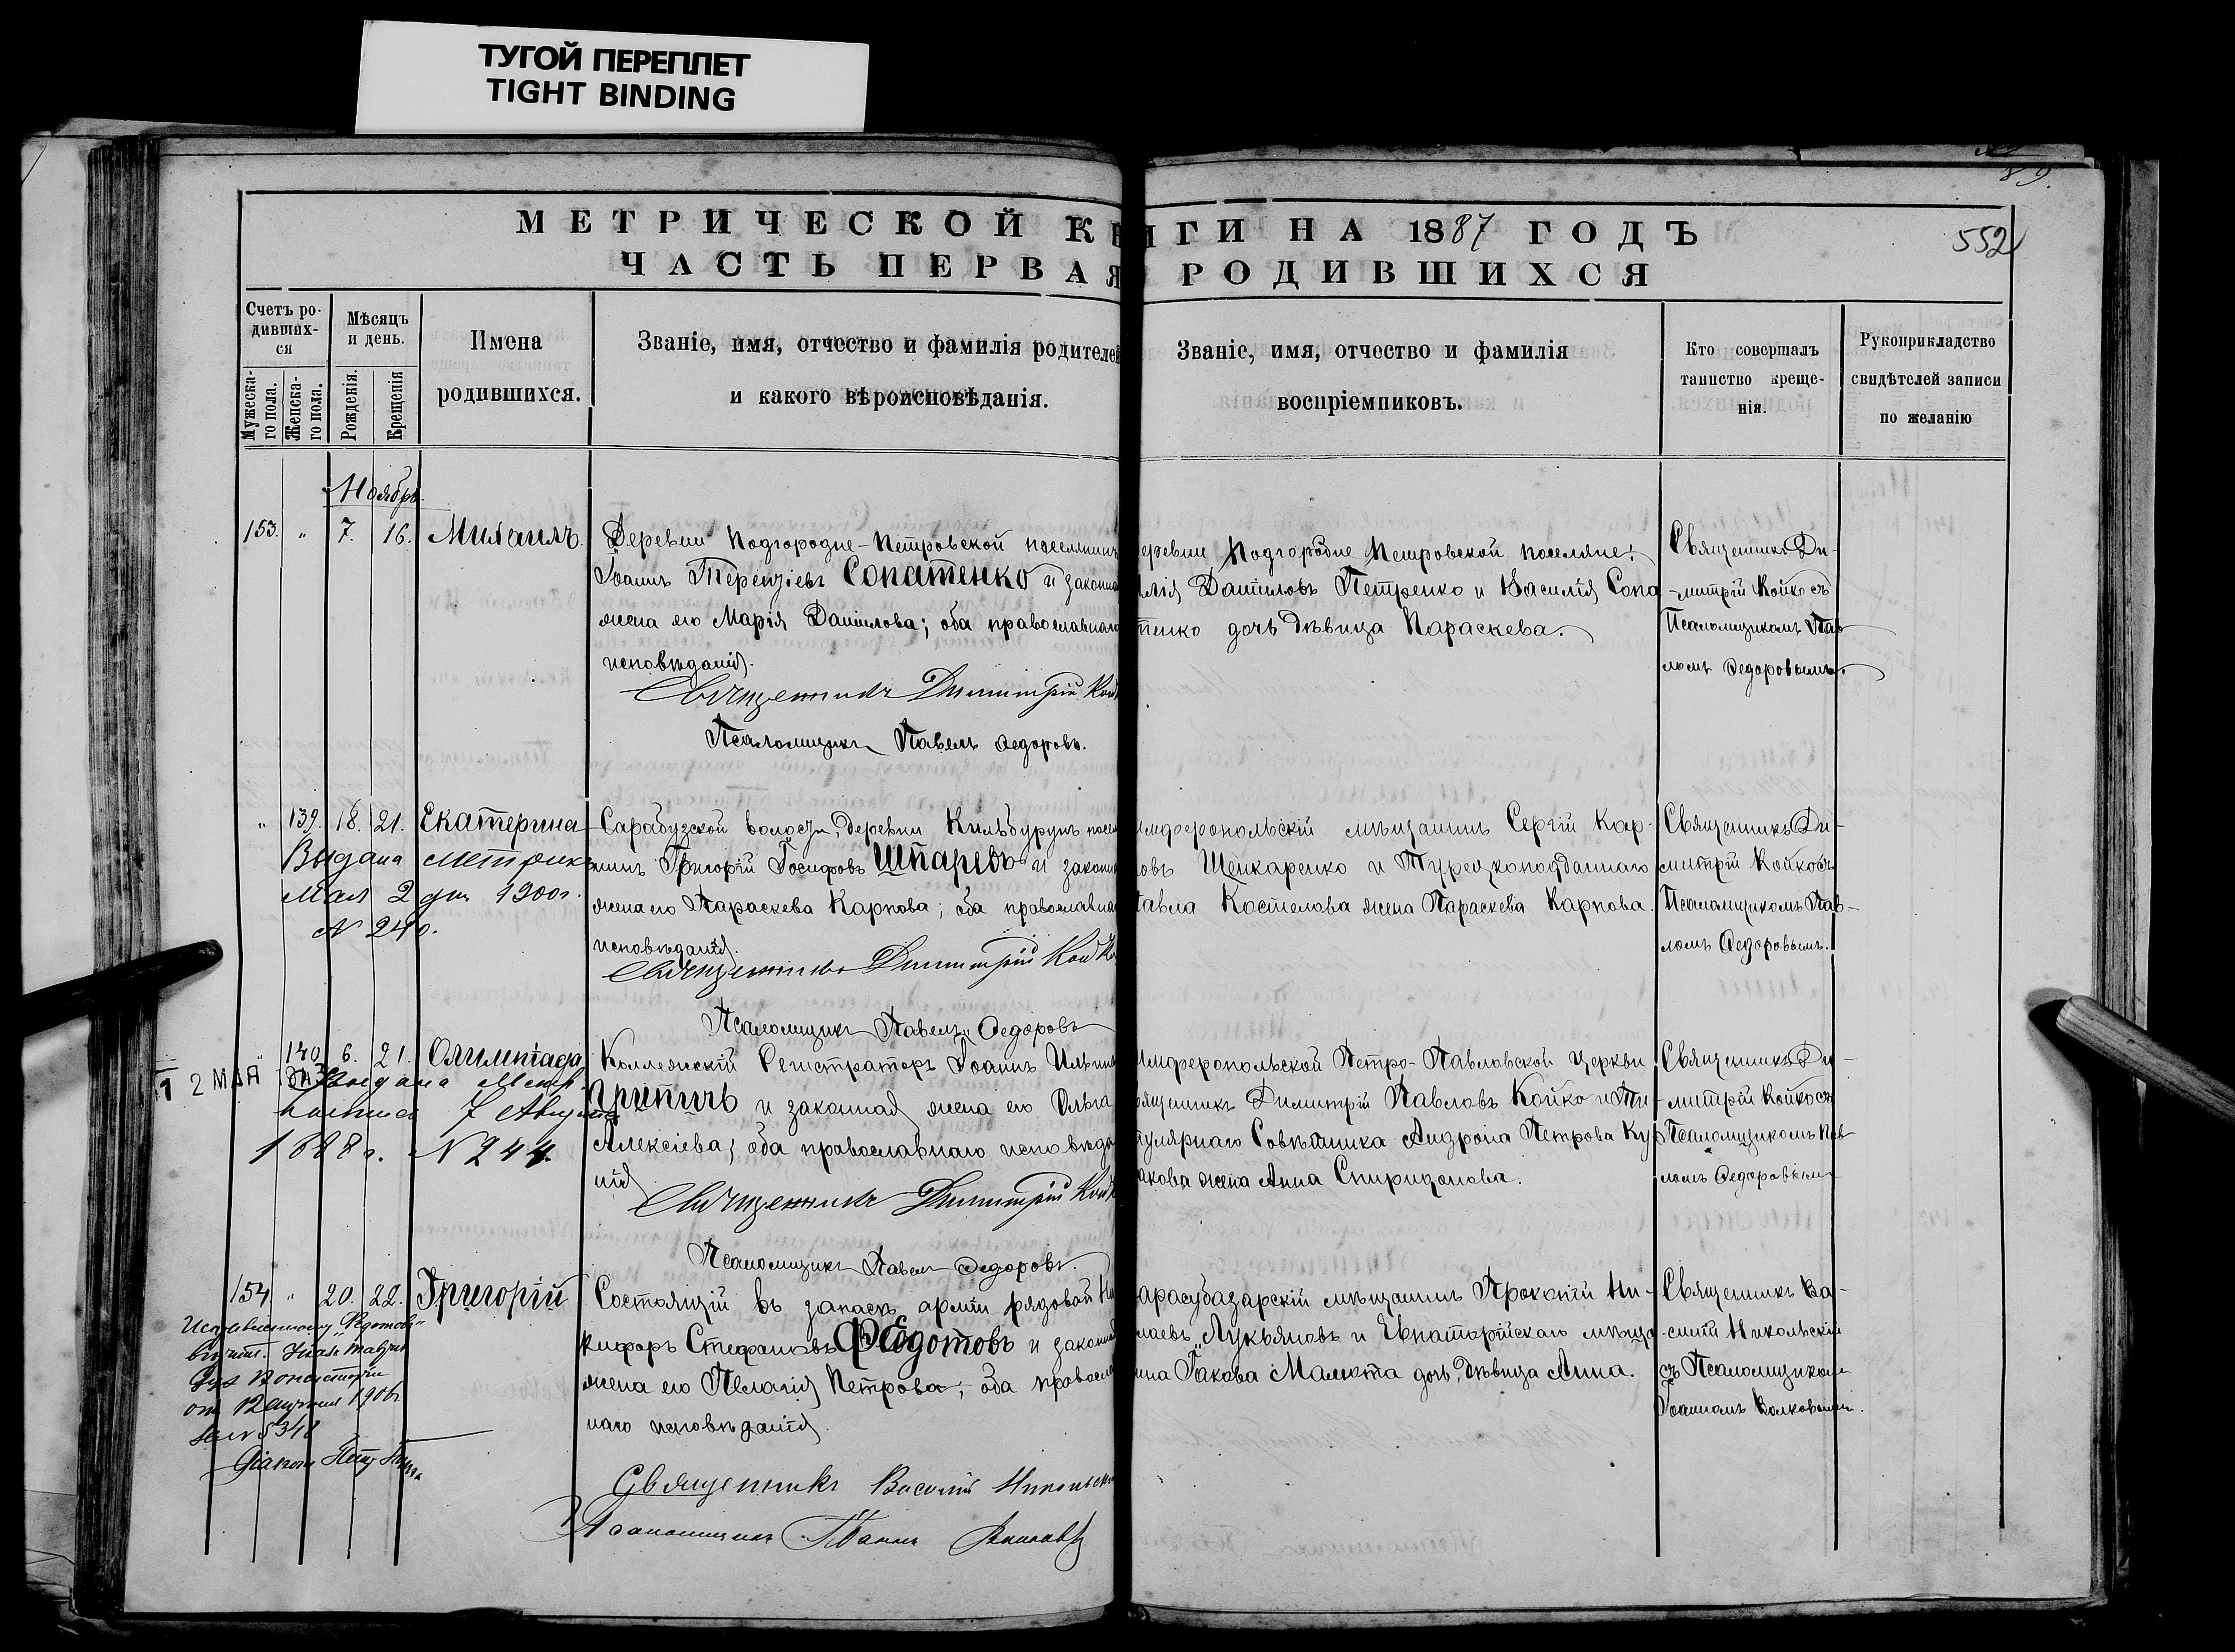 ТУГОЙ ПЕРЕПЛЕТ
TIGHT BINDING
89.
МЕТРИЧЕСКОЙ КН
ИГИ НА 1887 ГОДЪ
552
ЧАСТЬ ПЕРВАЯ
РОДИВШИХСЯ
Счетъ ро-
дивших-
ся
Мужеска-
го пола.
Женска-
го пола.
Мѣсяцъ
и день.
Рожденія.
Крещенія
Имена
родившихся.
Званіе, имя, отчество и фамилія родителей
и какого вѣроисповѣданія.
Званіе, имя, отчество и фамилія
воспріемниковъ.
Кто совершалъ
таинство креще-
нія.
Рукоприкладство
свидѣтелей записи
по желанію
Ноябрь.
153. " 7. 16. Михаилъ.
Деревни Подгородне-Петровской поселянинъ
Іоаннъ Терентіевъ Сопатенко и законная
жена его Марія Данилова; оба православнаго
исповѣданія.
Священникъ Димитрій Койко
Псаломщикъ Павелъ Ѳедоровъ.
деревни Подгородне Петровской поселяне:
Даниловъ Петренко и Василія Сопа
тенко дочь дѣвица Параскева.
Священникъ Ди-
-митрій Койко съ
Псаломщикомъ Пав-
ломъ Ѳедоровымъ.
" 139. 18. 21. Екатерина
Выдана метрика
Мая 2 дня 1900 г.
N 240.
Сарабузской волости, деревни Кильбурунъ посел
нинъ Григорій Іосифовъ Шпаревъ и законная
жена его Параскева Карпова; оба православнаго
исповѣданія.
Священникъ Димитрій Койко
Псаломщикъ Павелъ Ѳедоровъ
имферопольскій мѣщанинъ Сергій Кар-
овъ Шейкаренко и Турецкоподданнаго
Павла Костелова жена Параскева Карпова.
Священникъ Ди-
митрій Койко съ
Псаломщикомъ Пав-
ломъ Ѳедоровымъ.
" 140 6. 21. Олимпіада
2 МАЯ
Выдана Метр.
7 Августа
1888 г. N 244.
Коллежскій Регистраторъ Іоаннъ Ильинъ
Припичъ и законная жена его Ольга
Алексіева; оба православнаго исповѣда
нія
Священникъ Димитрій Койко
Псаломщикъ Павелъ Ѳедоровъ.
имферопольской Петро-Павловской церкви
священникъ Димитрій Павловъ Койко и Ти-
тулярнаго Совѣтника Андрона Петрова Ку
акова жена Анна Спиридонова.
Священникъ Ди-
митрій Койко съ
Псаломщикомъ Пав-
ломъ Ѳедоровымъ
154 " 20. 22. Григорій
Исправленному "Федотовъ"
вѣрить. Указъ Таврич
Дух Консисторіи
от 12 1906 г
за N 5348
Состоящій въ запасѣ арміи рядовой Ни
кифоръ Стефановъ Федотовъ и законная
жена его Пелагія Петрова; оба православ
наго исповѣданія.
Священникъ Василій Никольскій
Псаломщикъ Іоаннъ Волковъ
арасубазарскій мѣщанинъ Прокопій Ни-
лаевъ Лукьяновъ и Евпаторійскаго мѣща-
нина Іакова Малюта дочь, дѣвица Анна.
Священникъ Ва-
-силій Никольскій
съ Псаломщикомъ
Іоанномъ Волковымъ.